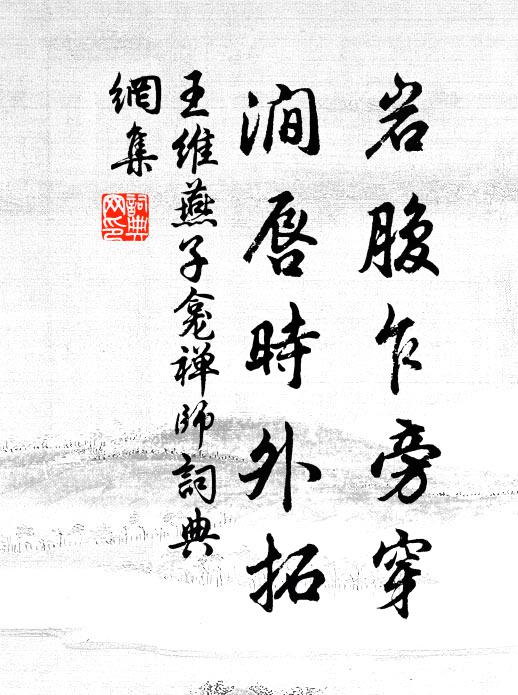 岩腹乍旁穿
澗唇時外拓
王維燕子龛禅師詞典
網集
詞典
网印